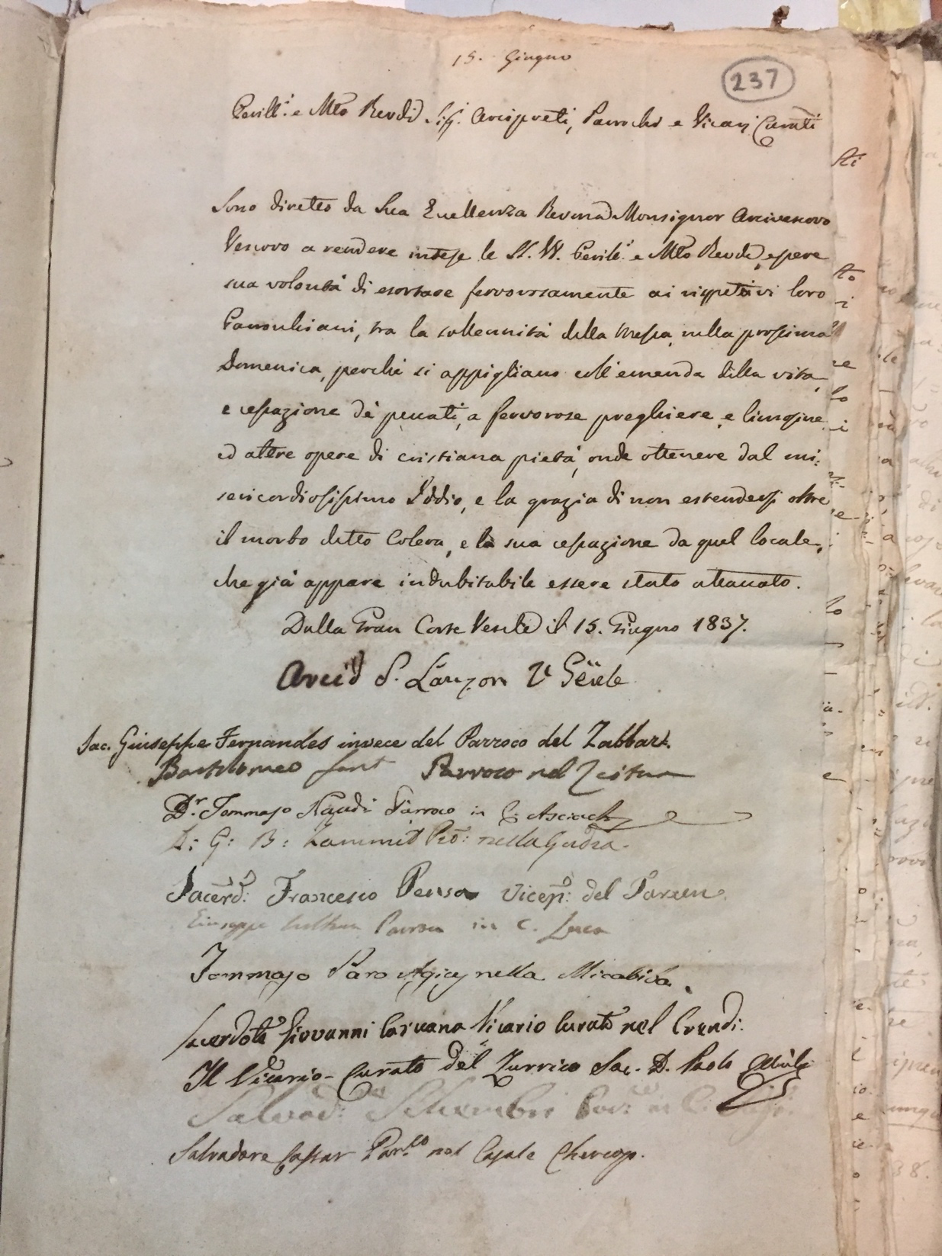 15. Giugno
237
Gentill.i e Mto Revdi Sigg.i Arcipreti, Parrochi e Vicarj Curati
Sono diretto da Sua Eccellenza Revma Monsignor Arcivescovo
Vescovo a rendere intese le SS. VV. Gentill.i e Mto Revde, essere
sua volontà di esortare fervorosamente ai rispettivi loro
Parrochiani, tra la sollennità della Messa, nella prossima
Domenica, perchè si appigliano coll'emenda della vita,
e cessazione dè peccati, a fervorose preghiere, e limosine
ed altre opere di cristiana pietà, onde ottenere dal mi:
sericordiosissimo Iddio, e la grazia di non estendersi oltre
il morbo detto Colera, e la sua cessazione da quel locale,
che già appare indubitabile essere stato attaccato.
Dalla Gran Corte Vescle il 15. Giugno 1837.
Arcid S. Lanzon V Gēnle
Sac. Giuseppe Fernandes invece del Parroco del Zabbar.
Bartolomeo Parroco nel Zeitun
Dr. Tommaso Naudi Parroco in C. Asciach
D: G: B: Zammit nella Gudia.
Sacerd: Francesco Penza Vicep: del
Giuseppe in C. Luca
Tommaso nella Micabiba.
Sacerdote Giovanni Caruana Vicario Curato nel Crendi.
Il Vicario-Curato del Zurrico Sac. D. Paolo
Salvad: Settembri
Salvadore Cassar nel Casale Chercop.